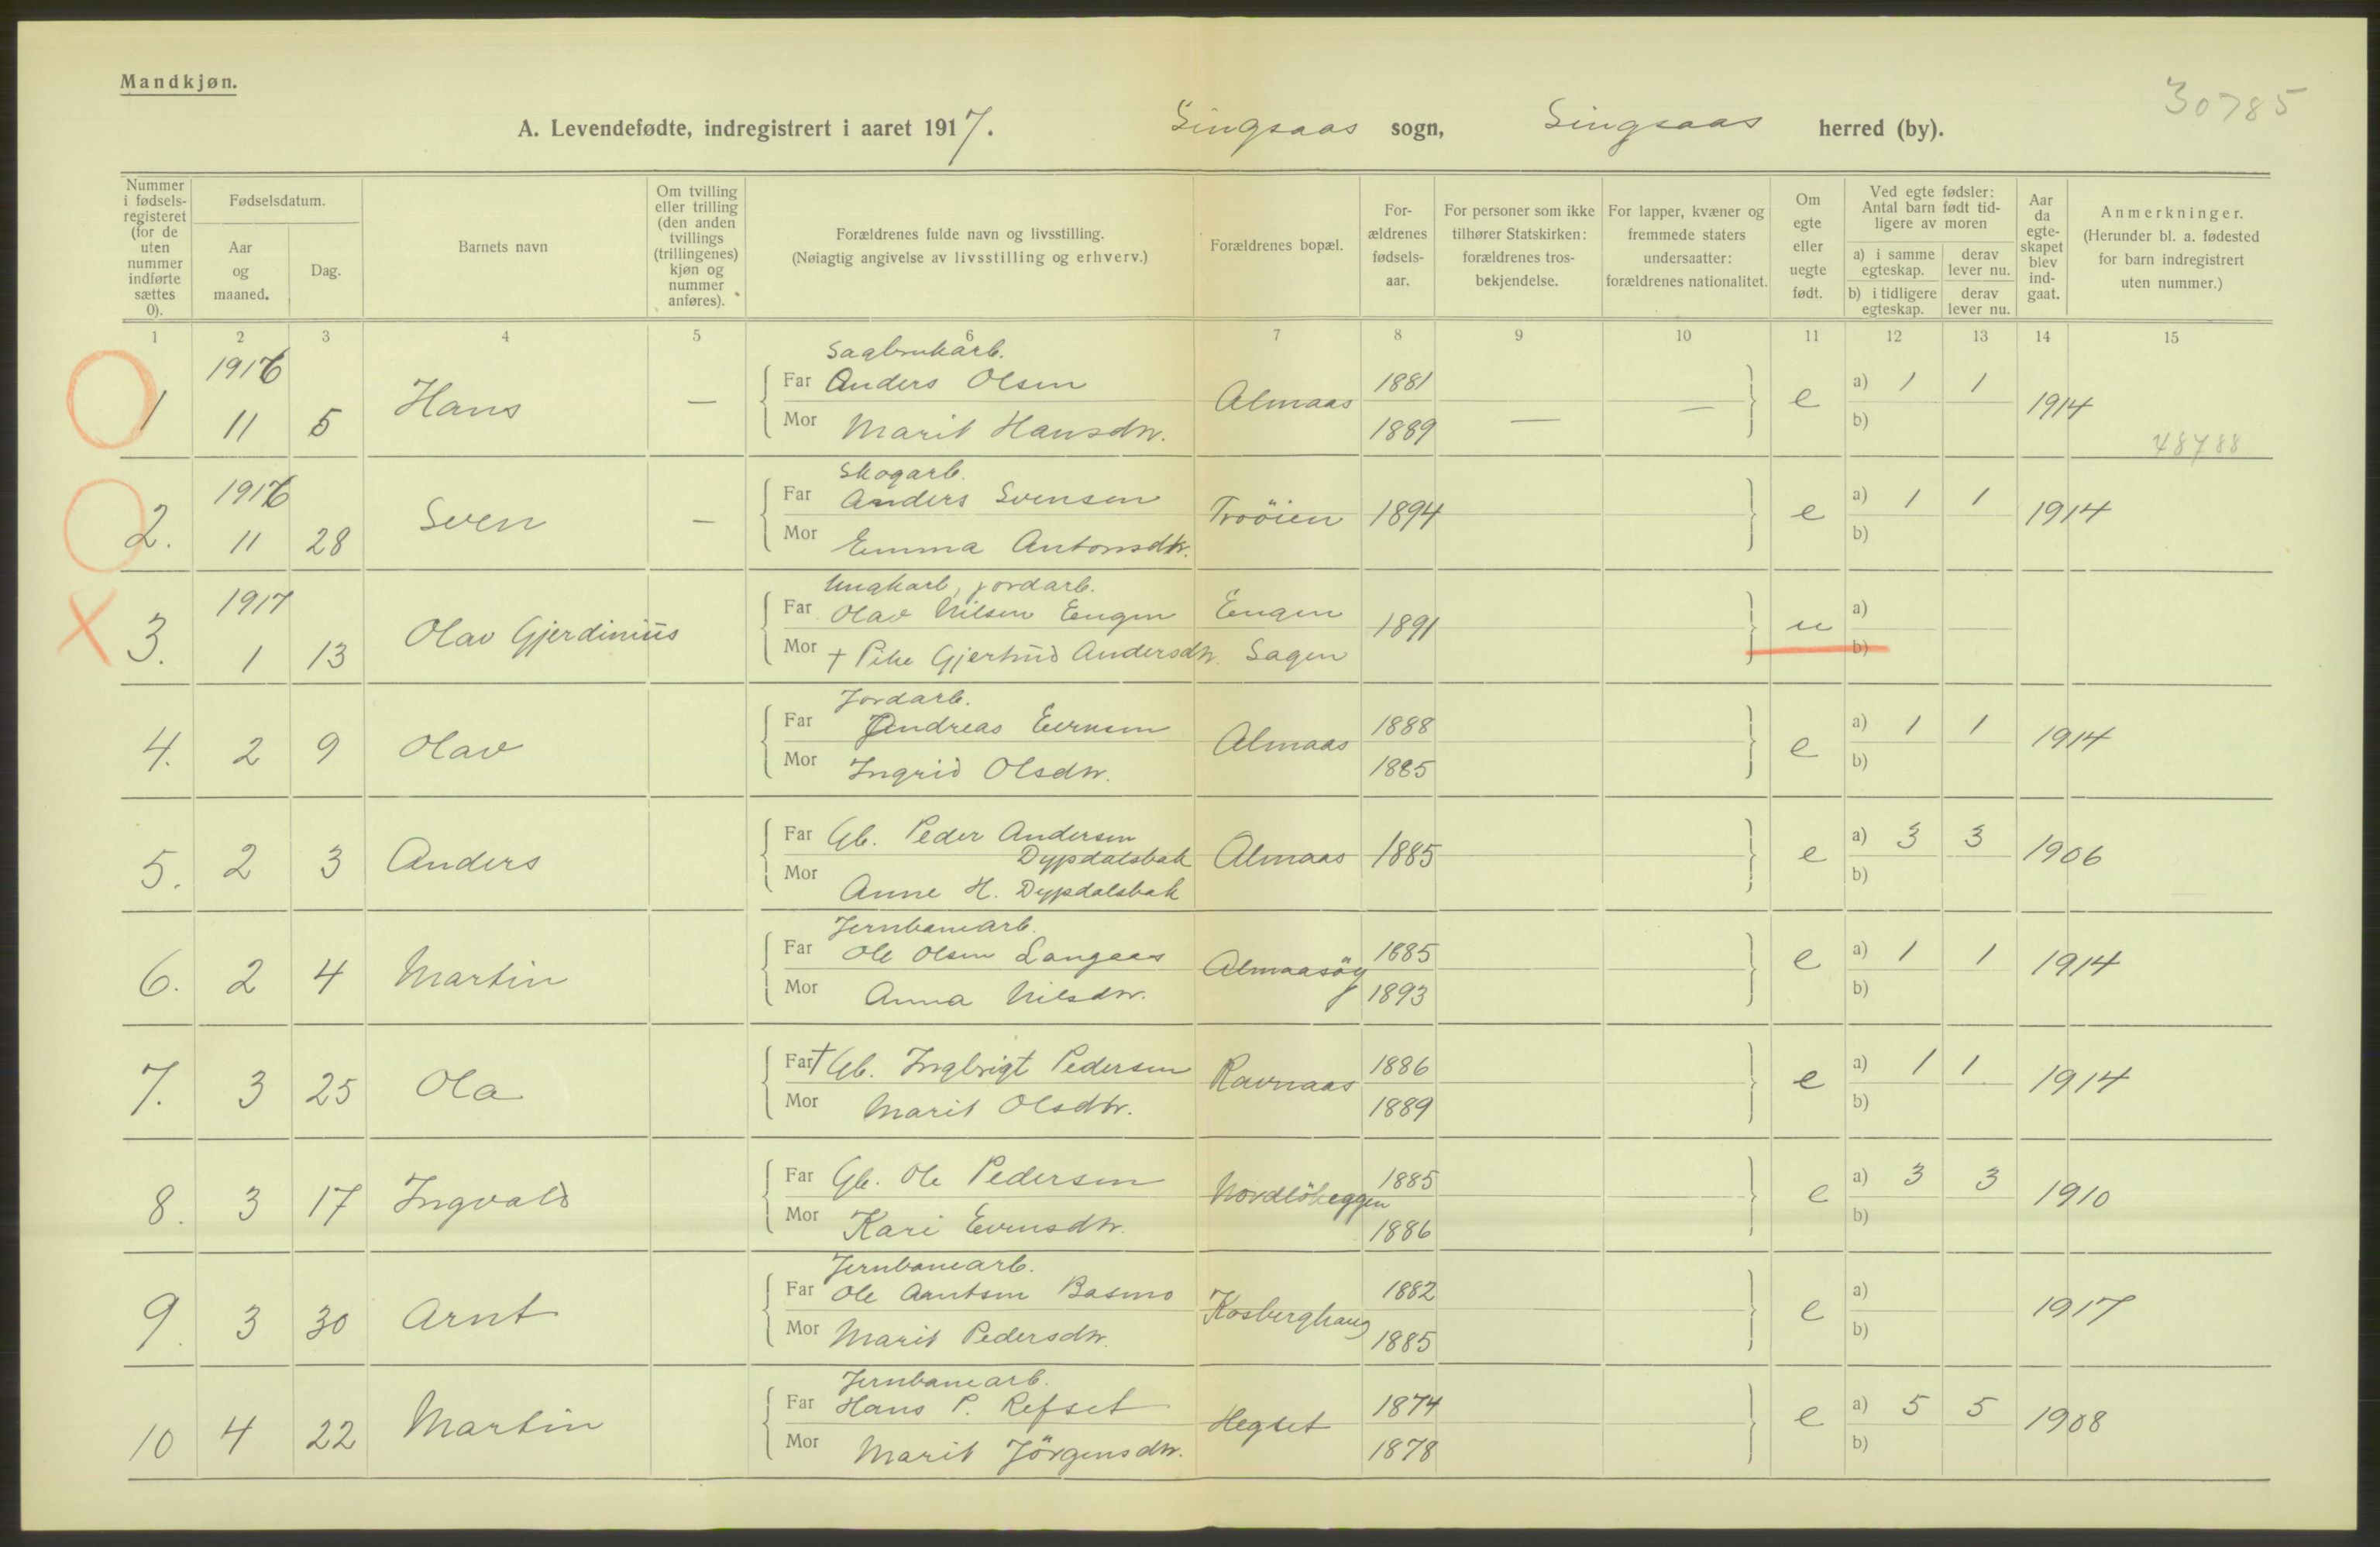 Mandkjøn.
30785
A. Levendefødte, indregistrert i aaret 1917. Singsaas sogn, Singsaas herred (by).
Nummer i fødsels-registeret (for de uten nummer indførte sættes 0).
Fødselsdatum.
Aar og maaned.
Dag.
Barnets navn
Om tvilling eller trilling (den anden tvillings (trillingenes) kjøn og nummer anføres).
Forældrenes fulde navn og livsstilling.
(Nøiagtig angivelse av livsstilling og erhverv.)
Forældrenes bopæl.
For-ældrenes fødsels-aar.
For personer som ikke tilhører Statskirken: forældrenes tros-bekjendelse.
For lapper, kvæner og fremmede staters undersaatter: forældrenes nationalitet.
Om egte eller uegte født.
Ved egte fødsler: Antal barn født tid-ligere av moren
a) i samme egteskap.
derav lever nu.
b) i tidligere egteskap.
derav lever nu.
Aar da egte-skapet blev ind-gaat.
Anmerkninger.
(Herunder bl. a. fødested for barn indregistrert uten nummer.)
1 2 3 4 5 6 7 8 9 10 11 12 13 14 15
1916 Sagbrukarb.
1 11 5 Hans — Far Anders Olsen Almaas 1881 — — e a) 1 1 1914
Mor Marit Hansdtr. 1889 b)
48788
1916 Skogarb.
2. 11 28 Sven — Far Anders Svensen Trøien 1894 e a) 1 1 1914
Mor Emma Antonsdtr. b)
1917 Ungkarl, jordarb.
3. 1 13 Olav Gjerdinius Far Olav Nilsen Engen Engen 1891 u a)
Mor + Pike Gjertrud Andersdtr. Sagen b)
Jordarb.
4. 2 9 Olav Far Andreas Evensen Almaas 1888 e a) 1 1 1914
Mor Ingrid Olsdtr. 1885 b)
5. 2 3 Anders Far Gb. Peder Andersen Dypdalsbak Almaas 1885 e a) 3 3 1906
Mor Anne H. Dypdalsbak b)
Jernbanearb.
6. 2 4 Martin Far Ole Olsen Langaas Almaasöy 1885 e a) 1 1 1914
Mor Anna Nilsdtr. 1893 b)
7. 3 25 Ola Far + Gb. Ingbrigt Pedersen Ravnaas 1886 e a) 1 1 1914
Mor Marit Olsdtr. 1889 b)
8. 3 17 Ingvald Far Gb. Ole Pedersen 1885 e a) 3 3 1910
Mor Kari Evensdtr. 1886 b)
Jernbanearb.
9. 3 30 Arnt Far Ole Arntsen Basmo Kosberghaug 1882 e a) 1917
Mor Marit Pedersdtr. 1885 b)
Jernbanearb.
10 4 22 Martin Far Hans P. Refset Hegset 1874 e a) 5 5 1908
Mor Marit Jörgensdtr. 1878 b)